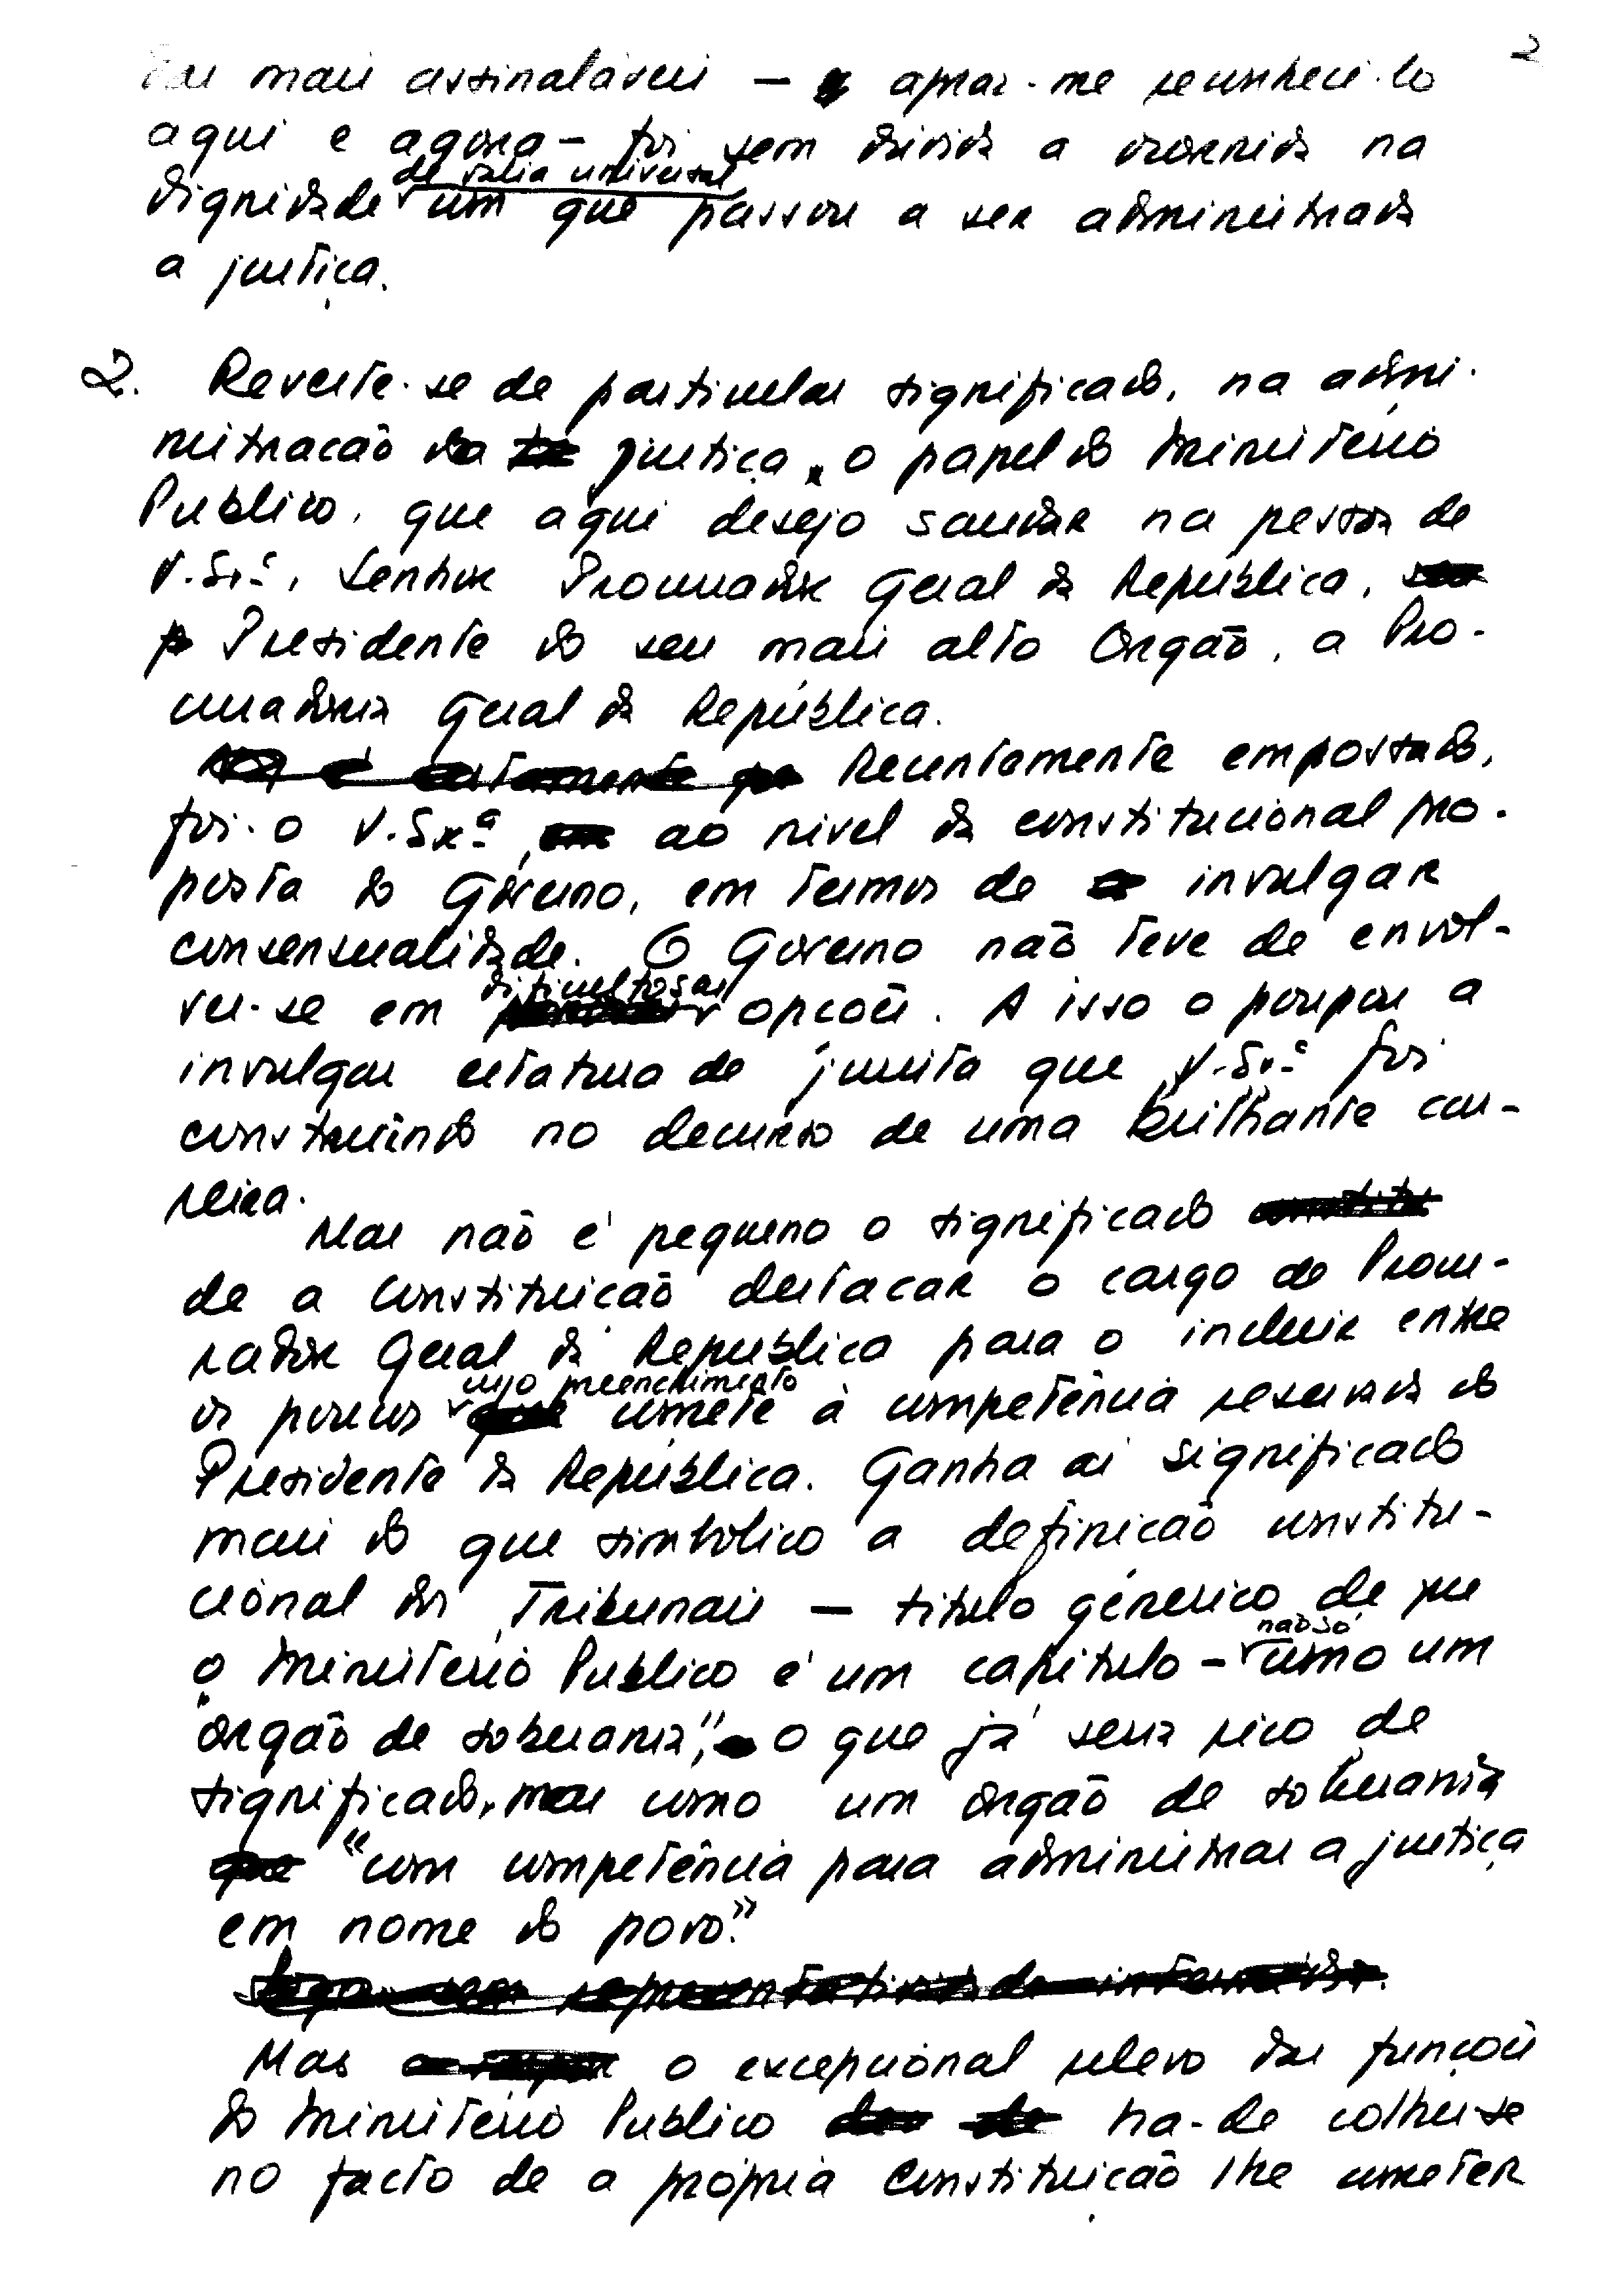 2
das mais assinaláveis — apraz-me reconhecê-lo
aqui e agora — foi sem dúvida a ocorrida na
dignidade de valia universal com que passou a ser administrada
a justiça.
2. Reveste-se de particular significado, na admi-
nistração da justiça, o papel do Ministério
Publico, que aqui desejo saudar na pessoa de
V. Exª, Senhor Procurador Geral da República,
Presidente do seu mais alto Orgão, a Pro-
curadoria Geral da República.
Recentemente empossado,
foi-o V. Exª, ao nivel da constitucional pro-
posta do Govêrno, em termos de invulgar
consensualidade. O Governo não teve de envol-
ver-se em dificultosas opções. A isso o poupou a
invulgar estatura de jurista que V. Exª foi
construindo no decurso de uma brilhante car-
reira.
Mas não é pequeno o significado
de a Constituição destacar o cargo de Procu-
rador Geral da República para o incluir entre
os poucos cujo preenchimento comete à competência reservada do
Presidente da República. Ganha aí significado
mais do que simbólico a definição constitu-
cional dos Tribunais — titulo genérico de que
o Ministério Publico é um capitulo — não só como um
"orgão de soberania", o que já seria rico de
significado, mas como um orgão de soberania
"com competência para administrar a justiça
em nome do povo."
Mas o excepcional relevo das funções
do Ministério Publico ha-de colher-se
no facto de a própria Constituição lhe cometer